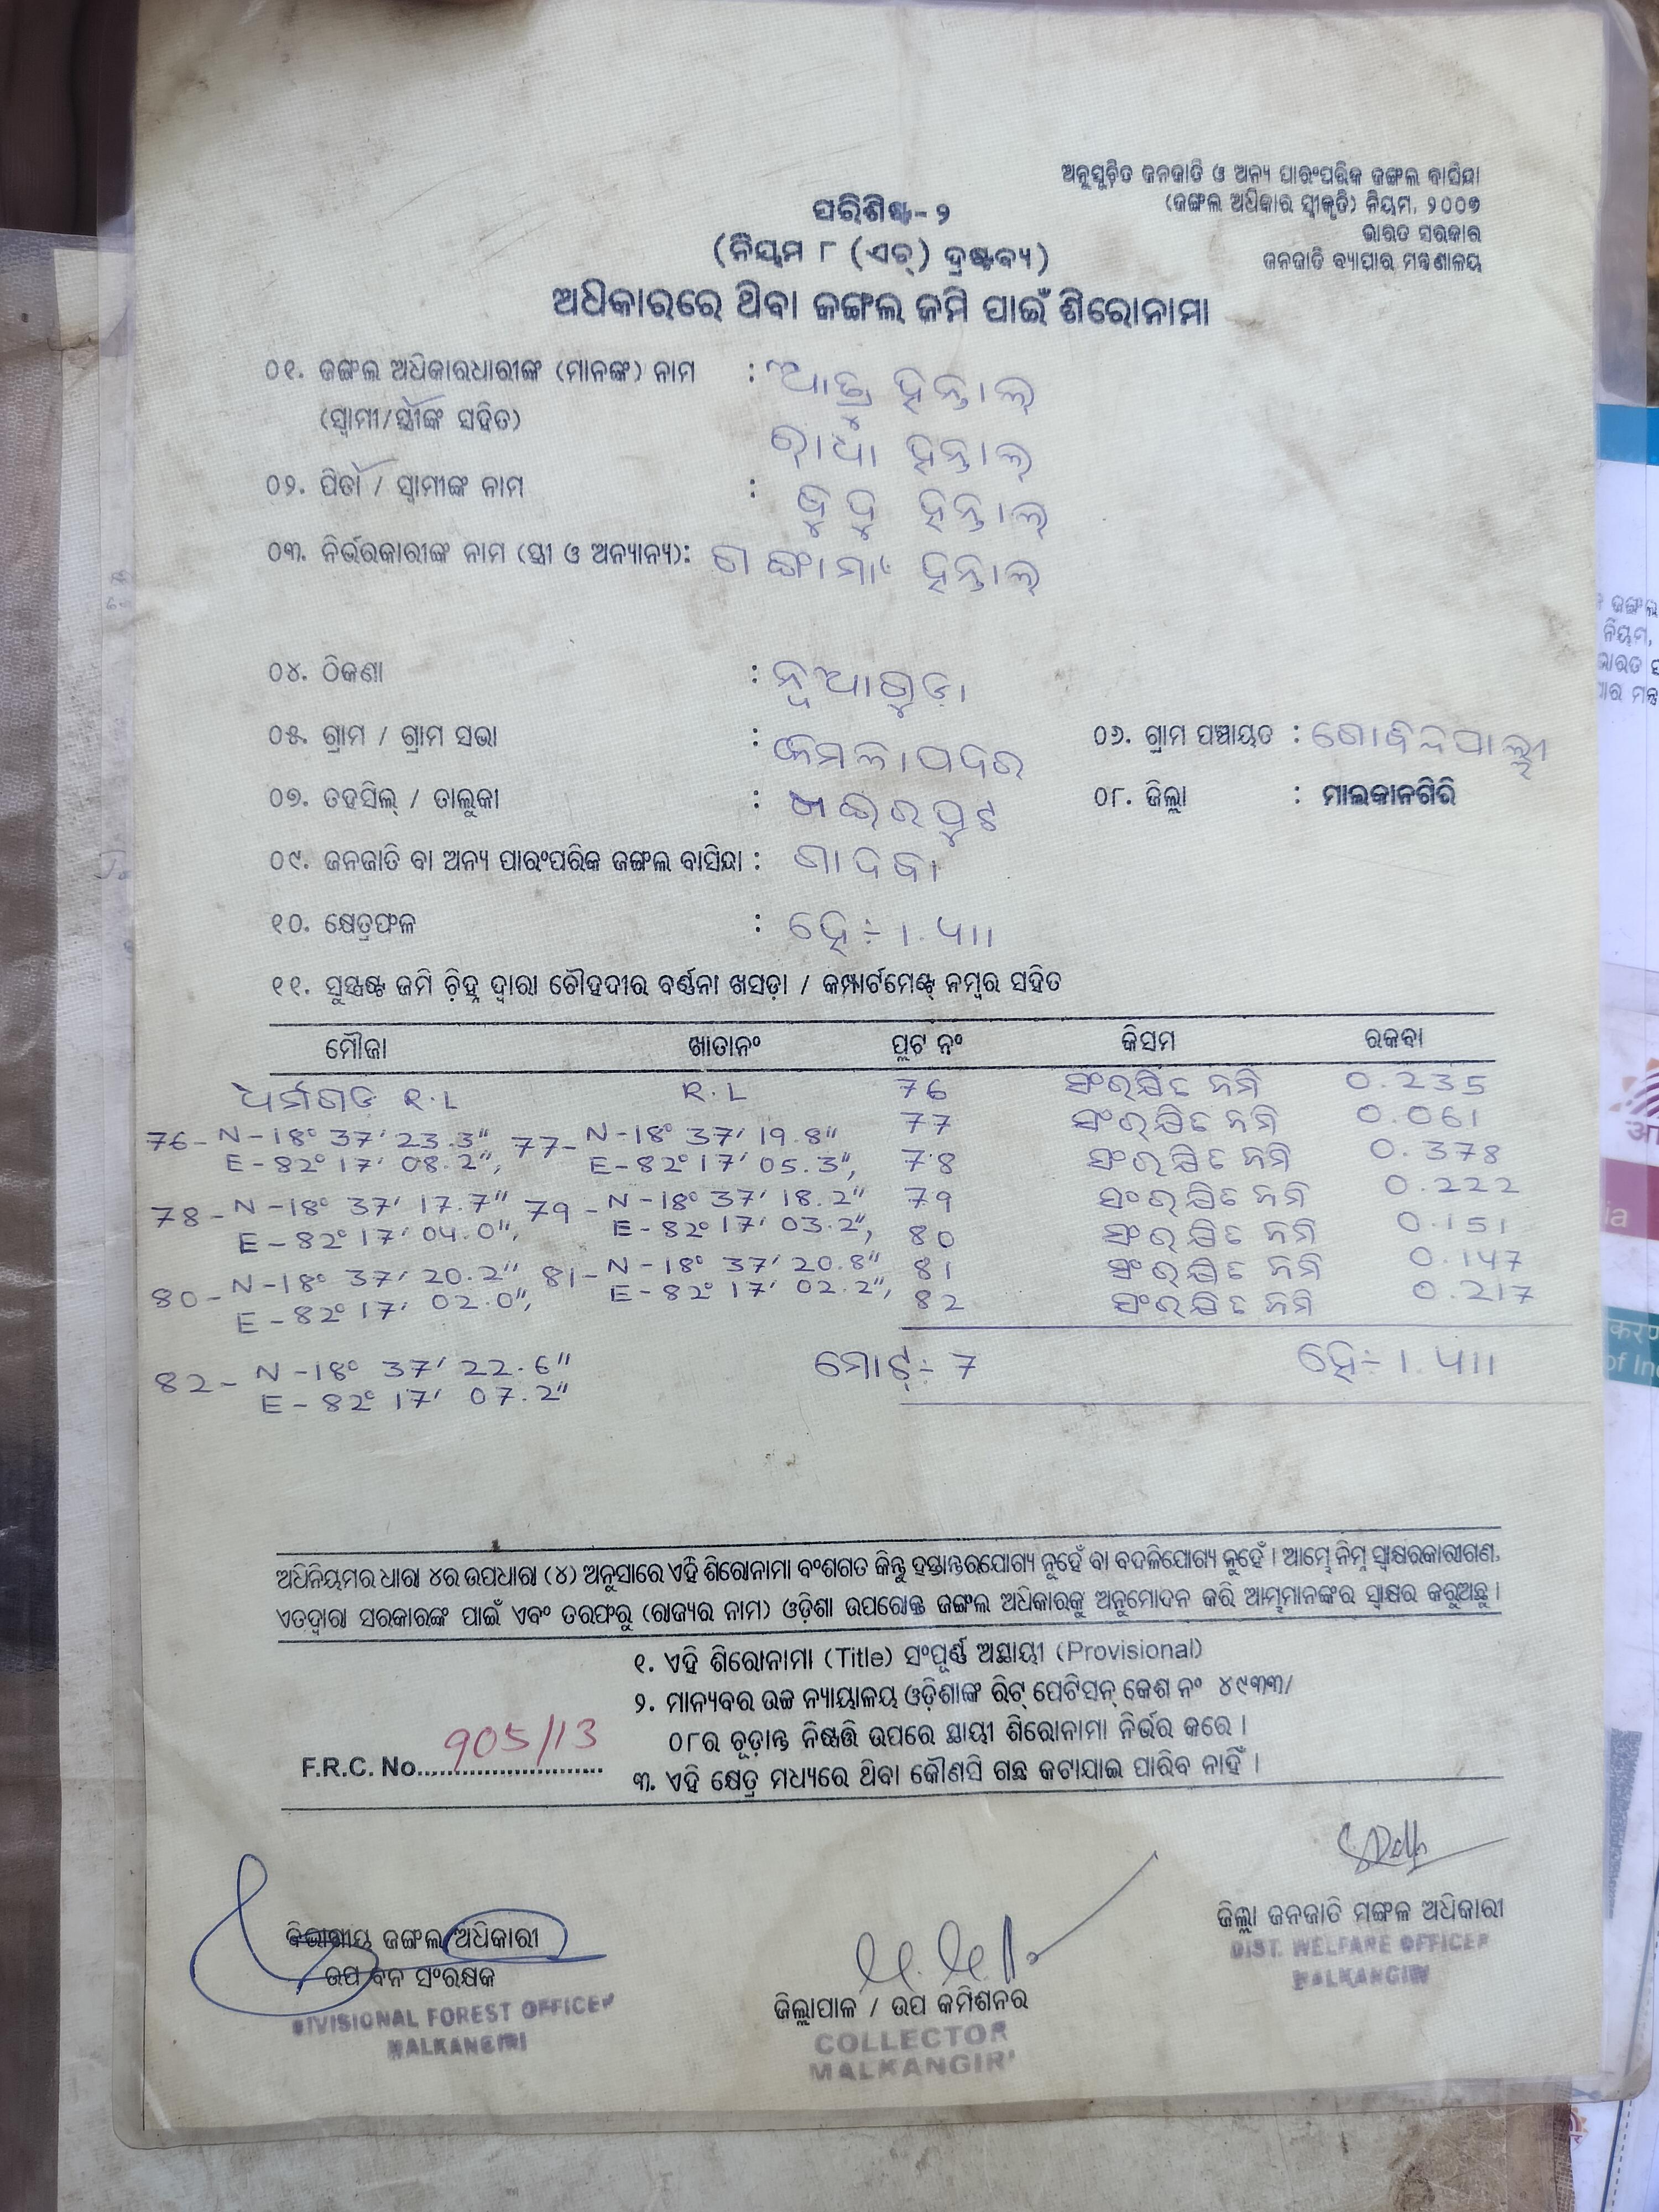 ଅନୁସୂଚିତ ଜନଜାତି ଓ ଅନ୍ୟ ପାରଂପରିକ ଜଙ୍ଗଲ ବାସିନ୍ଦା
(ଜଙ୍ଗଲ ଅଧିକାର ସ୍ୱୀକୃତି) ନିୟମ, ୨୦୦୭
ଭାରତ ସରକାର
ଜନଜାତି ବ୍ୟାପାର ମନ୍ତ୍ରଣାଳୟ
ପରିଶିଷ୍ଟ- ୨
(ନିୟମ ୮ (ଏଚ୍) ଦ୍ରଷ୍ଟବ୍ୟ)
ଅଧିକାରରେ ଥିବା ଜଙ୍ଗଲ ଜମି ପାଇଁ ଶିରୋନାମା
୦୧. ଜଙ୍ଗଲ ଅଧିକାରଧାରୀଙ୍କ (ମାନଙ୍କ) ନାମ : ହନ୍ତାଲ୍
(ସ୍ୱାମୀ/ସ୍ତ୍ରୀଙ୍କ ସହିତ) ରାଧା ହନ୍ତାଲ୍
୦୨. ପିତା / ସ୍ୱାମୀଙ୍କ ନାମ : ହନ୍ତାଲ୍
୦୩. ନିର୍ଭରକାରୀଙ୍କ ନାମ (ସ୍ତ୍ରୀ ଓ ଅନ୍ୟାନ୍ୟ): ହନ୍ତାଲ୍
୦୪. ଠିକଣା : ନୂଆଗୁଡ଼ା
୦୫. ଗ୍ରାମ / ଗ୍ରାମ ସଭା : ୦୬. ଗ୍ରାମ ପଞ୍ଚାୟତ : ଗୋବିନ୍ଦପାଲ୍ଲୀ
୦୭. ତହସିଲ୍ / ତାଲୁକା : ଖଇରପୁଟ ୦୮. ଜିଲ୍ଲା : ମାଲକାନଗିରି
୦୯. ଜନଜାତି ବା ଅନ୍ୟ ପାରଂପରିକ ଜଙ୍ଗଲ ବାସିନ୍ଦା : ଗାଦବା
୧୦. କ୍ଷେତ୍ରଫଳ : ହେ÷ 1.411
୧୧. ସୁସ୍ପଷ୍ଟ ଜମି ଚିହ୍ନ ଦ୍ୱାରା ଚୌହଦୀର ବର୍ଣ୍ଣନା ଖସଡ଼ା / କମ୍ପାର୍ଟମେଣ୍ଟ୍ ନମ୍ବର ସହିତ
ମୌଜା ଖାତାନଂ ପ୍ଲଟ ନଂ କିସମ ରକବା
ଧର୍ମଗଡ R.L R.L 76 ସଂରକ୍ଷିତ ଜମି 0.235
76- N-18° 37' 23.3" 77- N-18° 37' 19.8" 77 ସଂରକ୍ଷିତ ଜମି 0.061
E-82° 17' 08.2", E-82° 17' 05.3", 78 ସଂରକ୍ଷିତ ଜମି 0.378
78- N-18° 37' 17.7" 79- N-18° 37' 18.2" 79 ସଂରକ୍ଷିତ ଜମି 0.222
E-82° 17' 04.0", E-82° 17' 03.2", 80 ସଂରକ୍ଷିତ ଜମି 0.151
80- N-18° 37' 20.2" 81- N-18° 37' 20.8" 81 ସଂରକ୍ଷିତ ଜମି 0.147
E-82° 17' 02.0", E-82° 17' 02.2", 82 ସଂରକ୍ଷିତ ଜମି 0.217
82- N-18° 37' 22.6" ମୋଟ୍÷ 7 ହେ÷ 1.411
E-82° 17' 07.2"
ଅଧିନିୟମର ଧାରା ୪ର ଉପଧାରା (୪) ଅନୁସାରେ ଏହି ଶିରୋନାମା ବଂଶଗତ କିନ୍ତୁ ହସ୍ତାନ୍ତରଯୋଗ୍ୟ ନୁହେଁ ବା ବଦଳିଯୋଗ୍ୟ ନୁହେଁ । ଆମ୍ଭେ ନିମ୍ନ ସ୍ୱାକ୍ଷରକାରୀଗଣ,
ଏତଦ୍ୱାରା ସରକାରଙ୍କ ପାଇଁ ଏବଂ ତରଫରୁ (ରାଜ୍ୟର ନାମ) ଓଡ଼ିଶା ଉପରୋକ୍ତ ଜଙ୍ଗଲ ଅଧିକାରକୁ ଅନୁମୋଦନ କରି ଆମ୍ଭମାନଙ୍କର ସ୍ୱାକ୍ଷର କରୁଅଛୁ ।
୧. ଏହି ଶିରୋନାମା (Title) ସଂପୂର୍ଣ୍ଣ ଅସ୍ଥାୟୀ (Provisional)
୨. ମାନ୍ୟବର ଉଚ୍ଚ ନ୍ୟାୟାଳୟ ଓଡ଼ିଶାଙ୍କ ରିଟ୍ ପେଟିସନ୍ କେଶ ନଂ ୪୯୩୩/
୦୮ର ଚୂଡ଼ାନ୍ତ ନିଷ୍ପତ୍ତି ଉପରେ ସ୍ଥାୟୀ ଶିରୋନାମା ନିର୍ଭର କରେ ।
F.R.C. No. 905/13
୩. ଏହି କ୍ଷେତ୍ର ମଧ୍ୟରେ ଥିବା କୌଣସି ଗଛ କଟାଯାଇ ପାରିବ ନାହିଁ ।
ବିଭାଗୀୟ ଜଙ୍ଗଲ ଅଧିକାରୀ
ଉପ ବନ ସଂରକ୍ଷକ
DIVISIONAL FOREST OFFICER
MALKANGIRI
ଜିଲ୍ଲାପାଳ / ଉପ କମିଶନର
COLLECTOR
MALKANGIRI
ଜିଲ୍ଲା ଜନଜାତି ମଙ୍ଗଳ ଅଧିକାରୀ
DIST. WELFARE OFFICER
MALKANGIRI